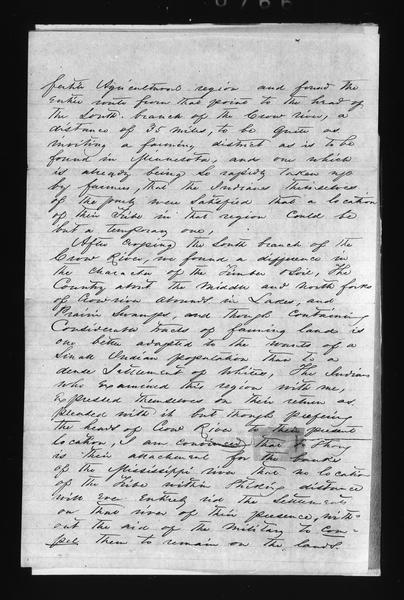 fertile Agricultural region and found the
Entire route from that point to the head of
the South branch of the Crow River, a
distance of 35 miles, to be quite as
inviting a farming district as is to be
found in Minnesota, and one which
is already being so rapidly taken up
by farmers, that the Indians themselves
of the party were satisfied that a location
of their Tribe in that region could be
but a temporary one,
After crossing the South branch of the
Crow River, we found a difference in
the character of the Timber & Soil, The
Country about the Middle and North forks
of Crow river abounds in Lakes, and
Prairie Swamps, and though containing
Considerable tracts of farming land is
one better adapted to the wants of a
Small Indian population than to a
dense Settlement of Whites, The Indians
who Examined this region with me,
Expressed themselves on their return as
pleased with it but though prefering
the heads of Crow River to their present
location, I am convinced that so strong
is their attachment for the banks
of the Mississippi river that no location
of the Tribe within striking distance
will Ever Entirely rid the Settlements
on that river of their presence, with-
out the aid of the Military to com-
pel them to remain on the lands.